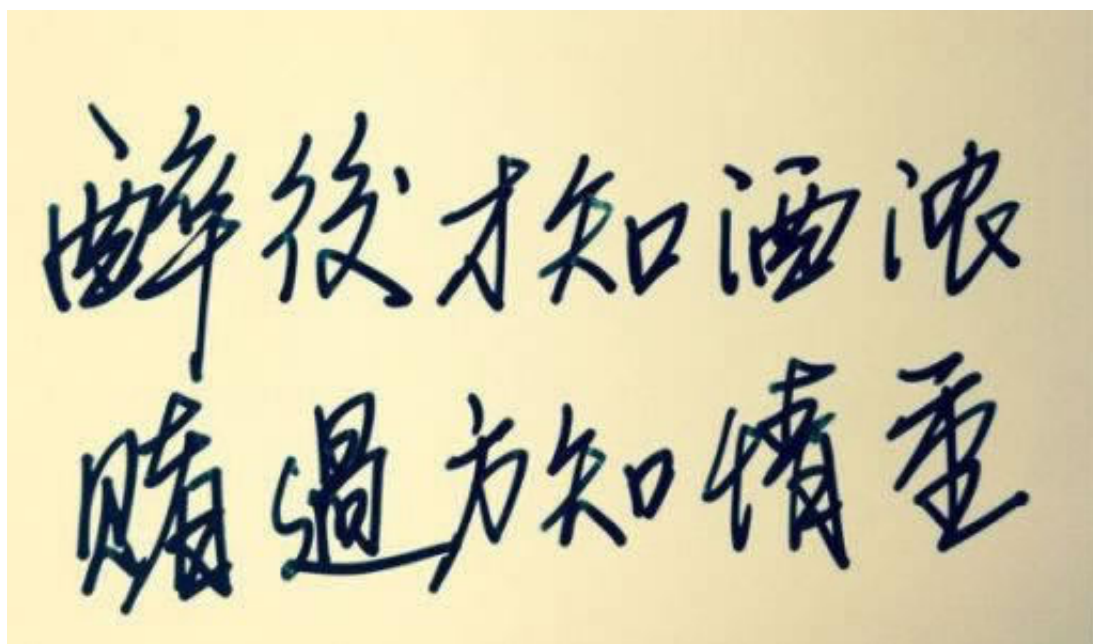 醉後才知酒浓
赌過方知情重